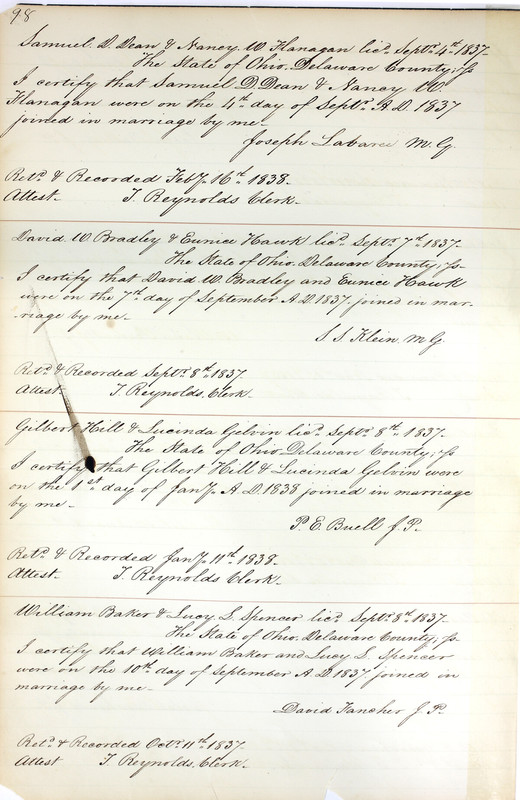 98
Samuel. D. Dean & Nancy. W Flanagan licd. Septr. 4th. 1837.
The State of Ohio. Delaware County; ss
I certify that Samuel D. Dean & Nancy W
Flanagan were on the 4th day of Septr. A.D. 1837
joined in marriage by me-
Joseph Labaree M. G.
Retd. & Recorded Feby. 16th. 1838.
Attest- T. Reynolds Clerk-
David. W Bradley & Eunice Hawk licd. Septr. 7th. 1837.
The State of Ohio. Delaware County; ss-
I certify that David W. Bradley and Eunice Hawk
were on the 7th. day of September A.D. 1837. joined in mar-
riage by me-
S S Klein M G
Retd. & Recorded Septr. 8th. 1837.
Attest- T. Reynolds. Clerk-
Gilbert Hill & Lucinda Gelvin licd. Septr. 8th. 1837.
The State of Ohio Delaware County; ss
I certify that Gilbert Hill & Lucinda Gelvin were
on the 1st day of Jany. A.D. 1838 joined in marriage
by me-
P. E. Buell J. P.
Retd. & Recorded Jany. 11th. 1838.
Attest- T. Reynolds Clerk-
William Baker & Lucy. L. Spencer licd. Septr. 8th. 1837-
The State of Ohio. Delaware County; ss-
I certify that William Baker and Lucy L. Spencer
were on the 10th. day of September A.D. 1837. joined in
marriage by me-
David Fancher J. P.
Retd. & Recorded Octr. 11th. 1837.
Attest T. Reynolds. Clerk-